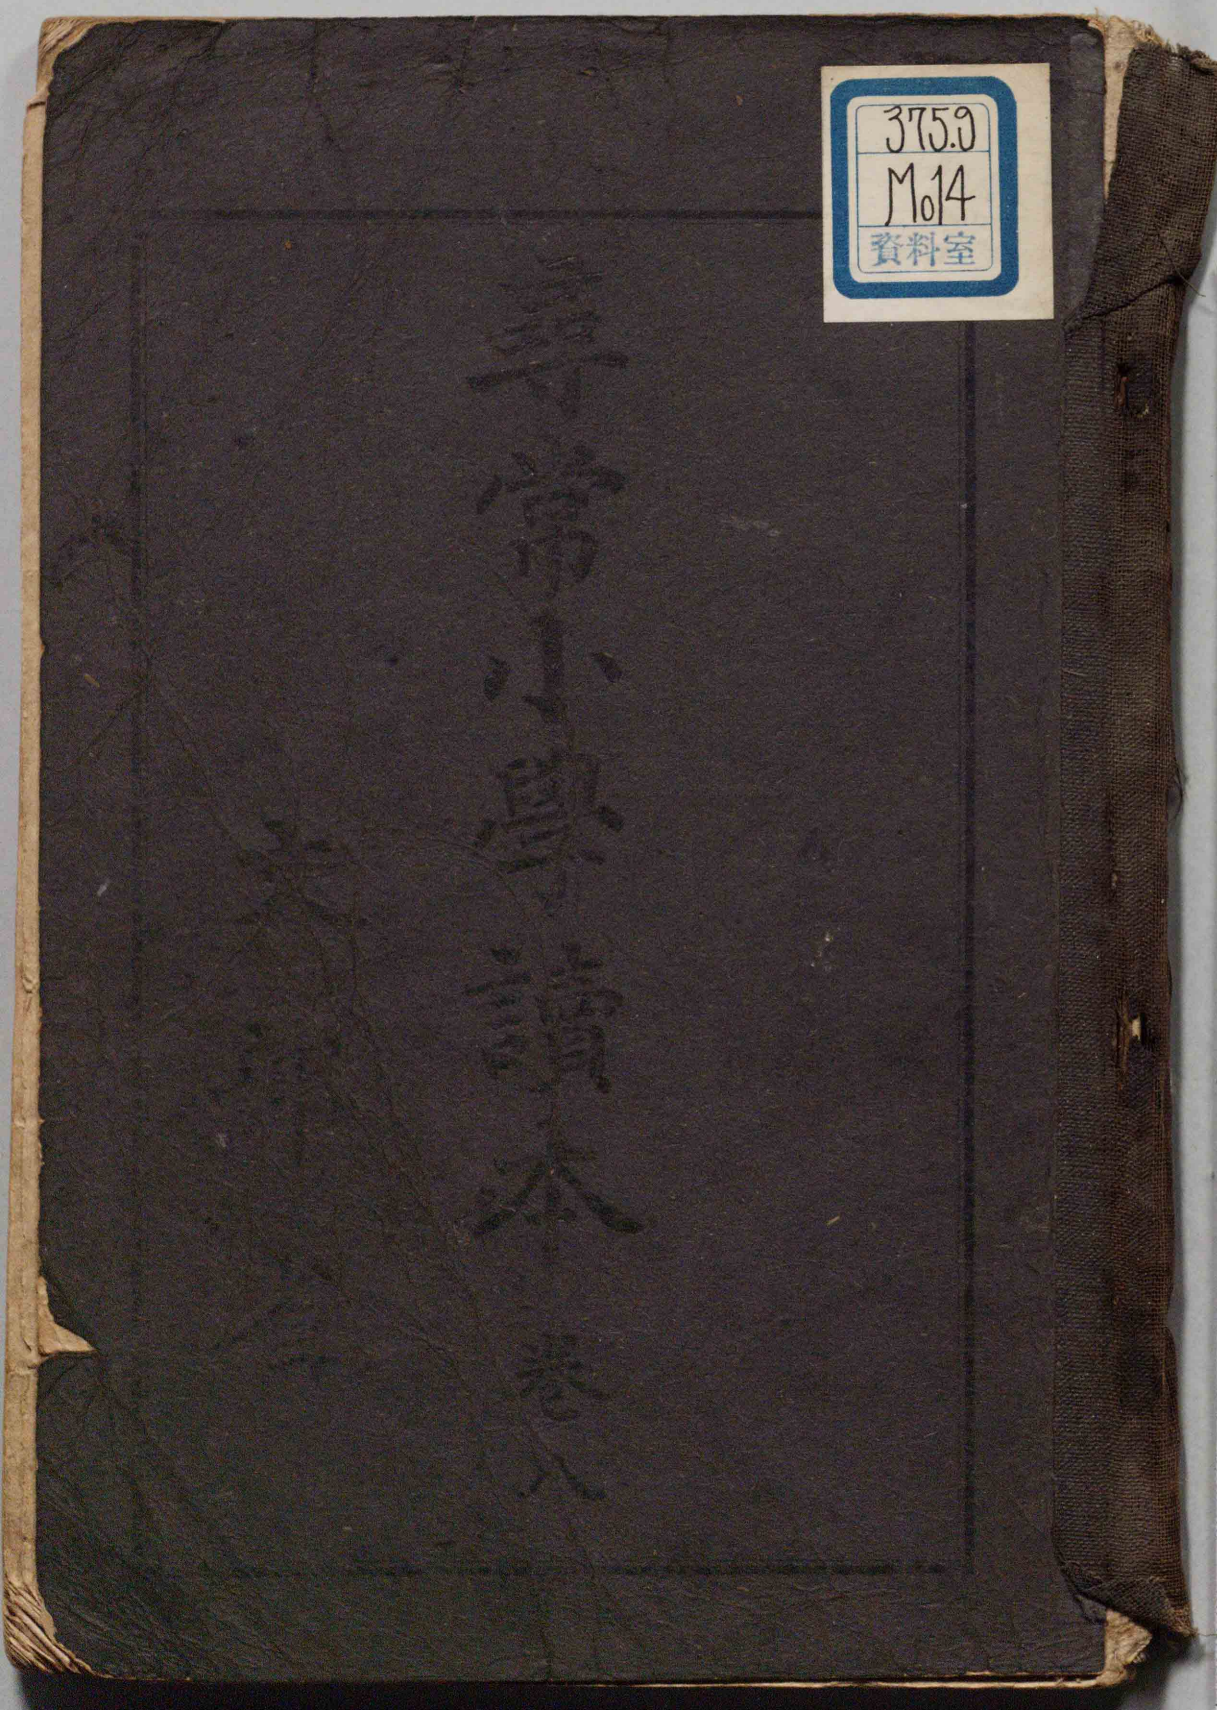 375.9
Mo14
資料室
尋常小學讀本 卷八
文部省